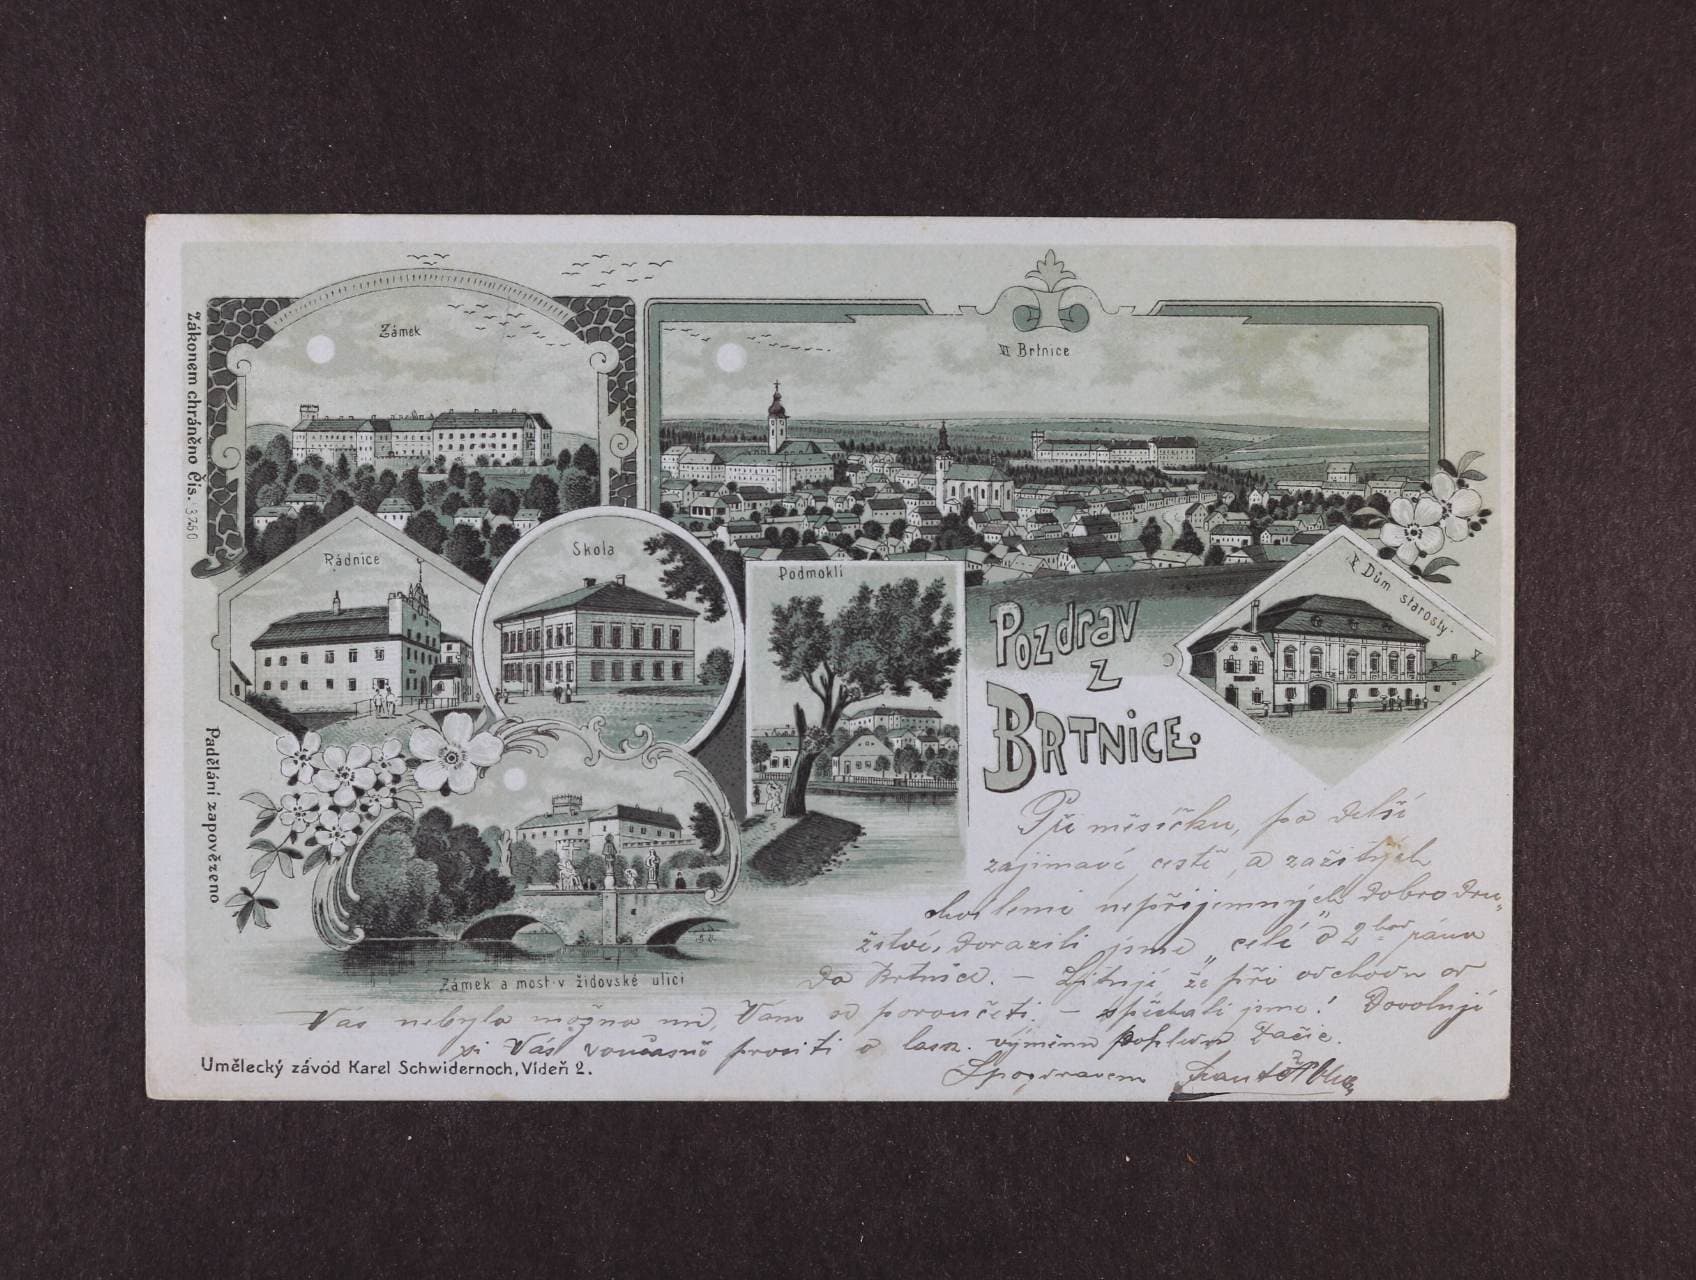 Zámek
VI Brtnice
Zákonem chráněno Čís. 3760
Rádnice
Skola
Podmoklí
Dům starosty
Pozdrav
z
Brtnice.
Padělání zapovězeno
Zámek a most v židovské ulici
Při měsíčku, po delší
zajímavé cestě, a zažitých
nepříjemných dobrodru-
žství, dorazili jsme "celí" o 2 hod ráno
do Brtnice. – Lituji že při odchodu od
Vás nebylo možno mně, Vám se poroučeti. – spěchali jsme! Dovoluji
si Vás současně prositi o lask. výměnu pohlednic
S pozdravem
Umělecký závod Karel Schwidernoch, Vídeň 2.